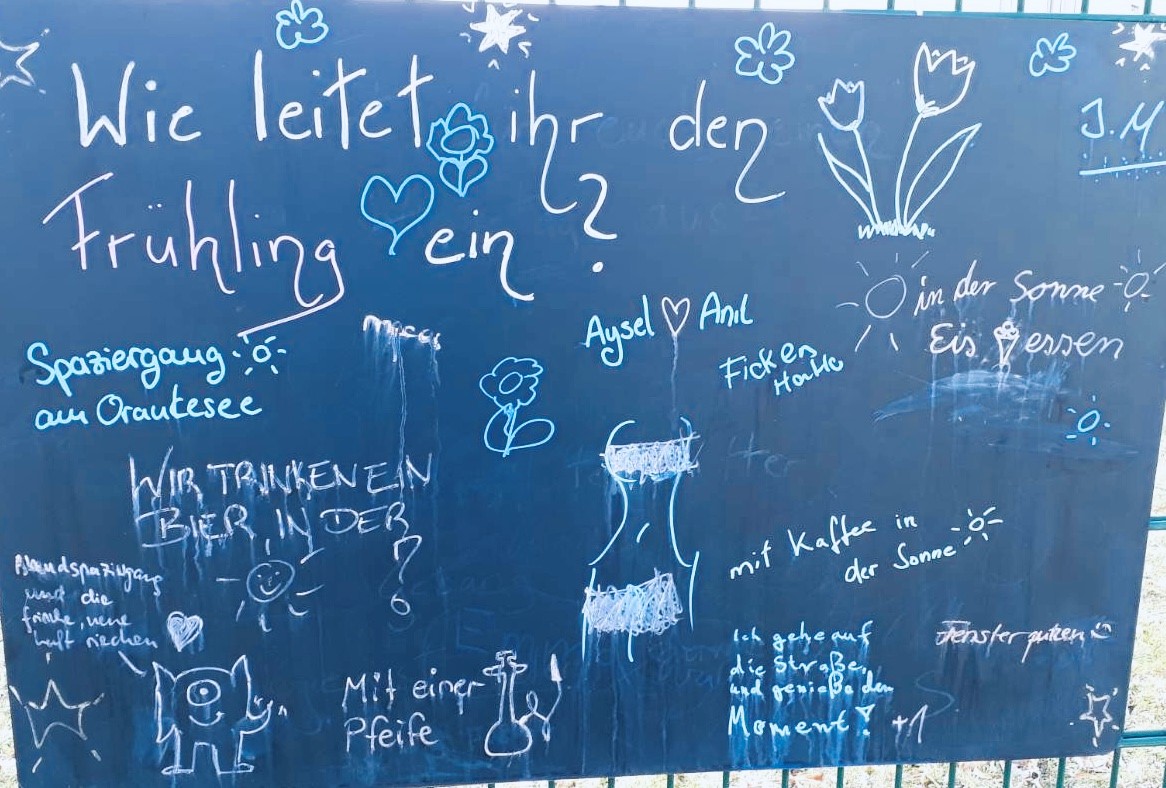 Wie leitet ihr den
Frühling ein?
J.M
Spaziergang
am Orankesee
Aysel Anıl
Ficken
in der Sonne
Eis essen
WIR TRINKEN EIN
BIER IN DER
?
mit Kaffee in
der Sonne
Abendspaziergang
und die
frische, neue
Luft riechen
Mit einer
Pfeife
Ich gehe auf
die Straße,
und genieße den
Moment! +1
Fenster putzen